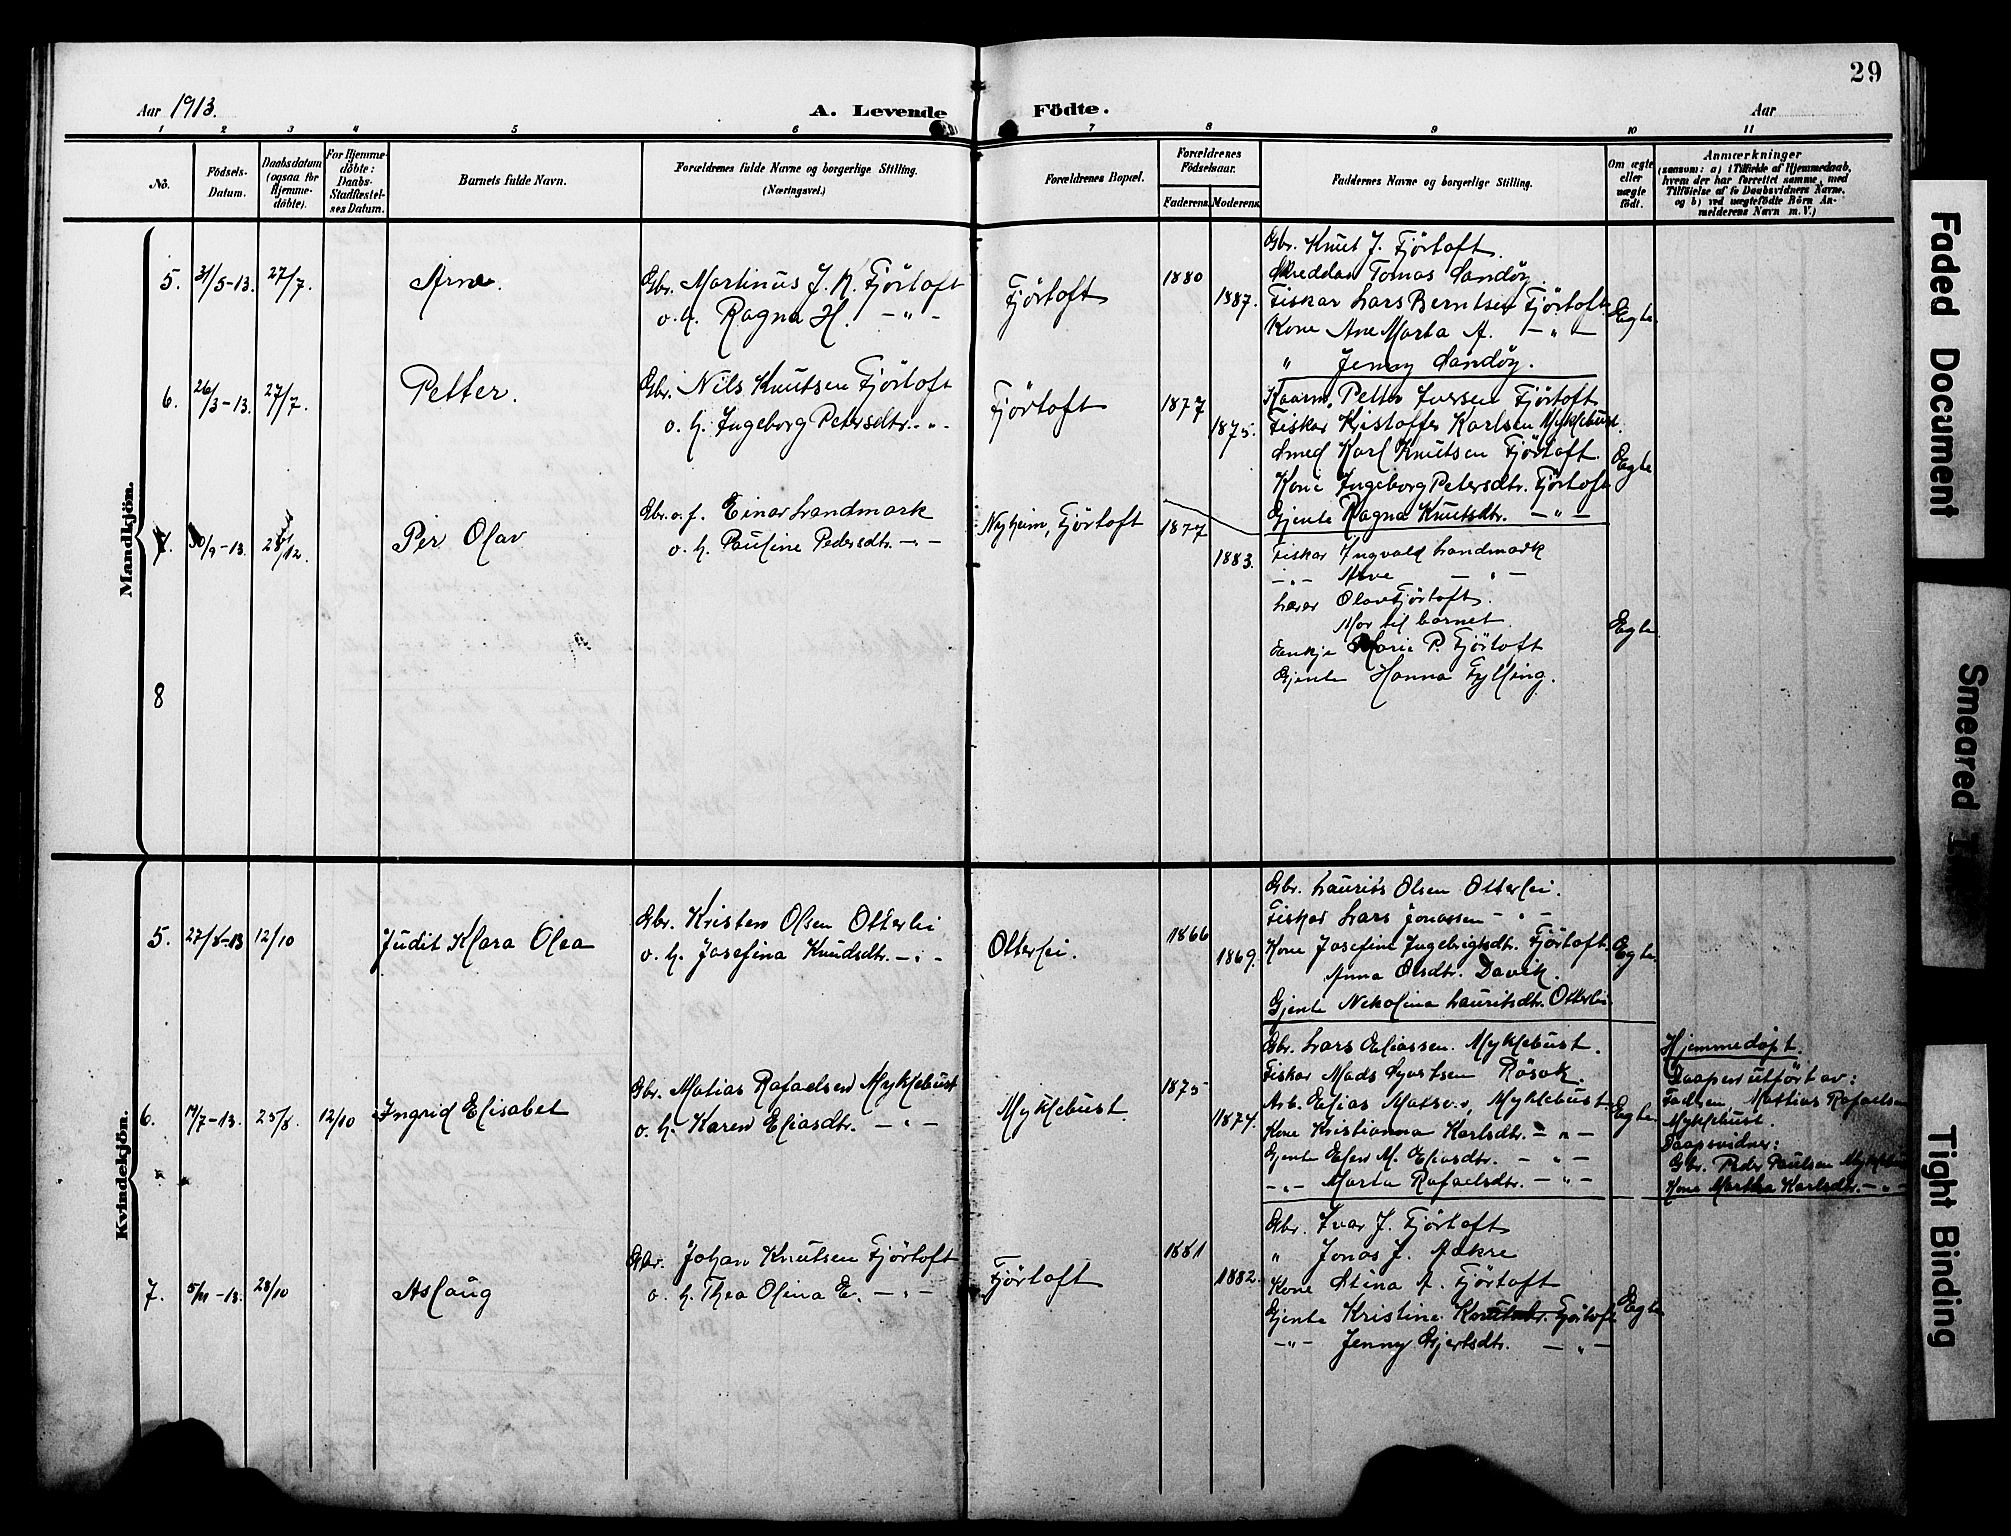 29
Aar 1913.
A. Levende Födte.
Aar
1 2 3 4 5 6 7 8 9 10 11
No.
Födsels-
Datum.
Daabsdatum
(ogsaa for
Hjemme-
döbte).
For Hjemme-
döbte:
Daabs-
Stadfæstel-
ses Datum.
Barnets fulde Navn.
Forældrenes fulde Navne og borgerlige Stilling.
(Næringsvei.)
Forældrenes Bopæl.
Forældrenes
Födselsaar.
Faderens. Moderens.
Faddernes Navne og borgerlige Stilling.
Om ægte
eller
uægte
födt.
Anmærkninger
(saasom: a) i Tilfælde af Hjemmedaab,
hvem der har forrettet samme, med
Tilföielse af to Daabsvidners Navne,
og b) ved uægtefödte Börn An-
melderens Navn m. V.)
Mandkjön.
5. 31/5-13. 27/7.
Arne.
Gbr. Martinus J. K. Fjörtoft
o. h. Ragna H. -"-
Fjörtoft
1880
1887.
Gbr. Knut J. Fjörtoft.
Skreddar Tomas Sandöy.
Fiskar Lars Berntsen Fjörtoft
Kone Ane Marta A. -"-
" Jenny Sandöy.
Egte.
6. 26/3-13. 27/7.
Petter.
Gbr. Nils Knutsen Fjörtoft
o. h. Ingeborg Petersdtr. -"-
Fjörtoft
1877
1875.
Kaarm. Petter Iversen Fjörtoft
Fiskar Kristoffer Karlsen Myklebust.
Smed Karl Knutsen Fjörtoft.
Kone Ingeborg Petersdtr. Fjörtoft
Gjente Ragna Knutsdtr. -"-
Egte
7. 30/9-13. 28/12.
Per Olav
Gbr. o. f. Einar Landmark
o. h. Pauline Pedersdtr. -"-
Nyheim, Fjörtoft
1877
1883.
Fiskar Ingvald Landmark
-"- Arve -"-
Lærar Olav Fjörtoft.
Mor til barnet.
Enkje Marie P. Fjörtoft
Gjente Hanna Fylling.
Egte.
8
Kvindekjön.
5. 27/8-13 12/10
Judit Klara Olea
Gbr. Kristen Olsen Otterlei
o. h. Josefina Knudsdtr. -"-
Otterlei.
1866
1869.
Gbr. Laurits Olsen Otterlei.
Fiskar Lars Jonassen -"-
Kone Josefine Ingebrigtsdtr. Fjörtoft
Anna Olsdtr. Davik.
Gjente Nikolina Lauritsdtr. Otterlei
Egte.
6. 17/7-13. 25/8. 12/10
Ingrid Elisabet
Gbr. Matias Rafaelsen Myklebust
o. h. Karen Eliasdtr. -"-
Myklebust.
1875
1874.
Gbr. Lars Eliassen. Myklebust.
Fiskar Mads Rösok.
Arb. Elias Myklebust
Kone Kristianna Karlsdtr. -"-
Gjente Elen M. Eliasdtr. -"-
-"- Marta Rafaelsdtr. -"-
Egte.
Hjemmedöpt.
Daapen utfört av:
Fadren, Mattias Rafaelsen
Myklebust.
Daapsvidner:
Gbr. Peder Paulsen Myklebust
Kone Martha Karlsdtr. -"-
7. 5/10-13. 28/10
Aslaug
Gbr. Johan Knutsen Fjörtoft
o. h. Thea Olina E. -"-
Fjörtoft
1881
1882.
Gbr. Ivar J. Fjörtoft
" Jonas J. Aakre
Kone Stina A. Fjörtoft
Gjente Kristine Knutsdtr. Fjörtoft
-"- Jenny Gjertsdtr. -"-
Egte
Faded Document
Smeared
Tight Binding